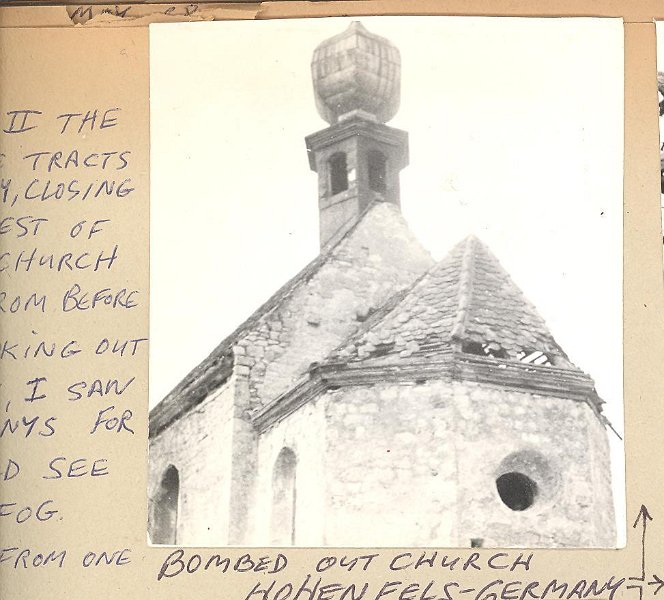 II THE
TRACTS
, CLOSING
EST OF
CHURCH
ROM BEFORE
KING OUT
, I SAW
NYS FOR
D SEE
FOG.
FROM ONE
BOMBED OUT CHURCH
HOHENFELS-GERMANY